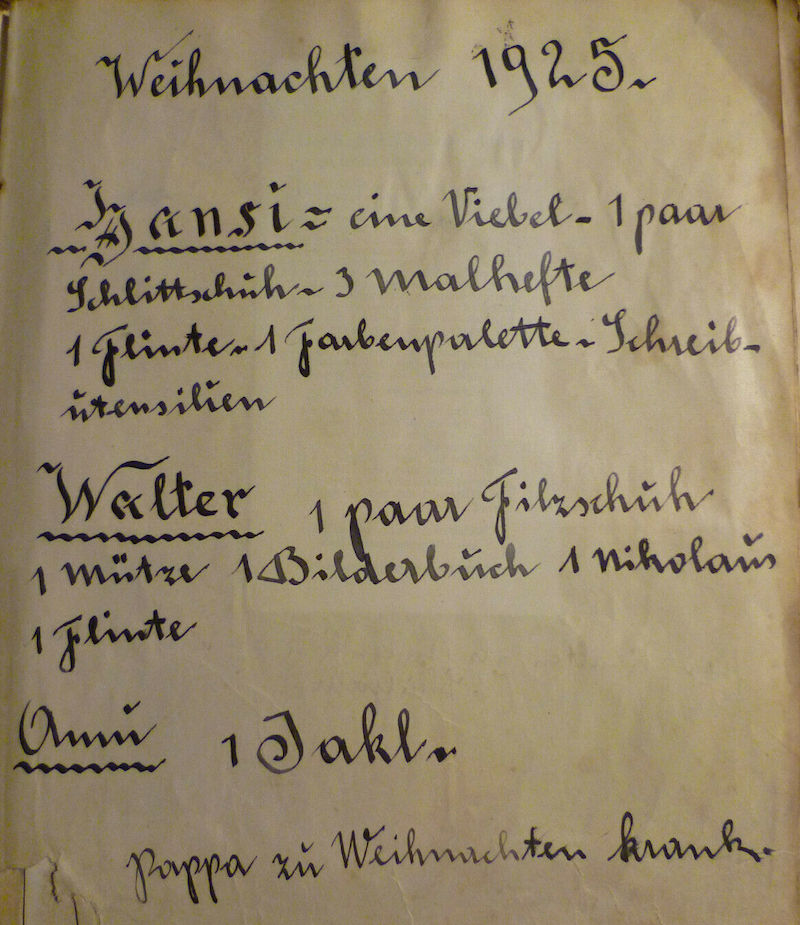 Weihnachten 1925.
Hansi = eine Viebel - 1 paar
Schlittschuh - 3 Malhefte
1 Flinte - 1 Farbenpalette - Schreib-
utensilien
Walter 1 paar Filzschuh
1 Mütze 1 Bilderbuch 1 Nikolaus
1 Flinte
1 Jakl.
Pappa zu Weihnachten krank.